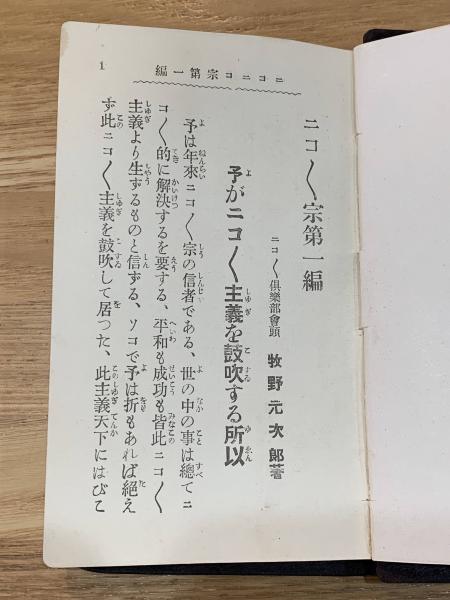 1
ニコニコ宗第一編
ニコ〱宗第一編
ニコ〱倶樂部會頭 牧野元次郎著
予がニコ〱主義を鼓吹する所以
予は年來ニコ〱宗の信者である、世の中の事は總てニ
コ〱的に解決するを要する、平和も成功も皆此ニコ〱
主義より生ずるものと信ずる、ソコで予は折もあれば絕え
ず此ニコ〱主義を鼓吹して居つた、此主義天下にはびこ